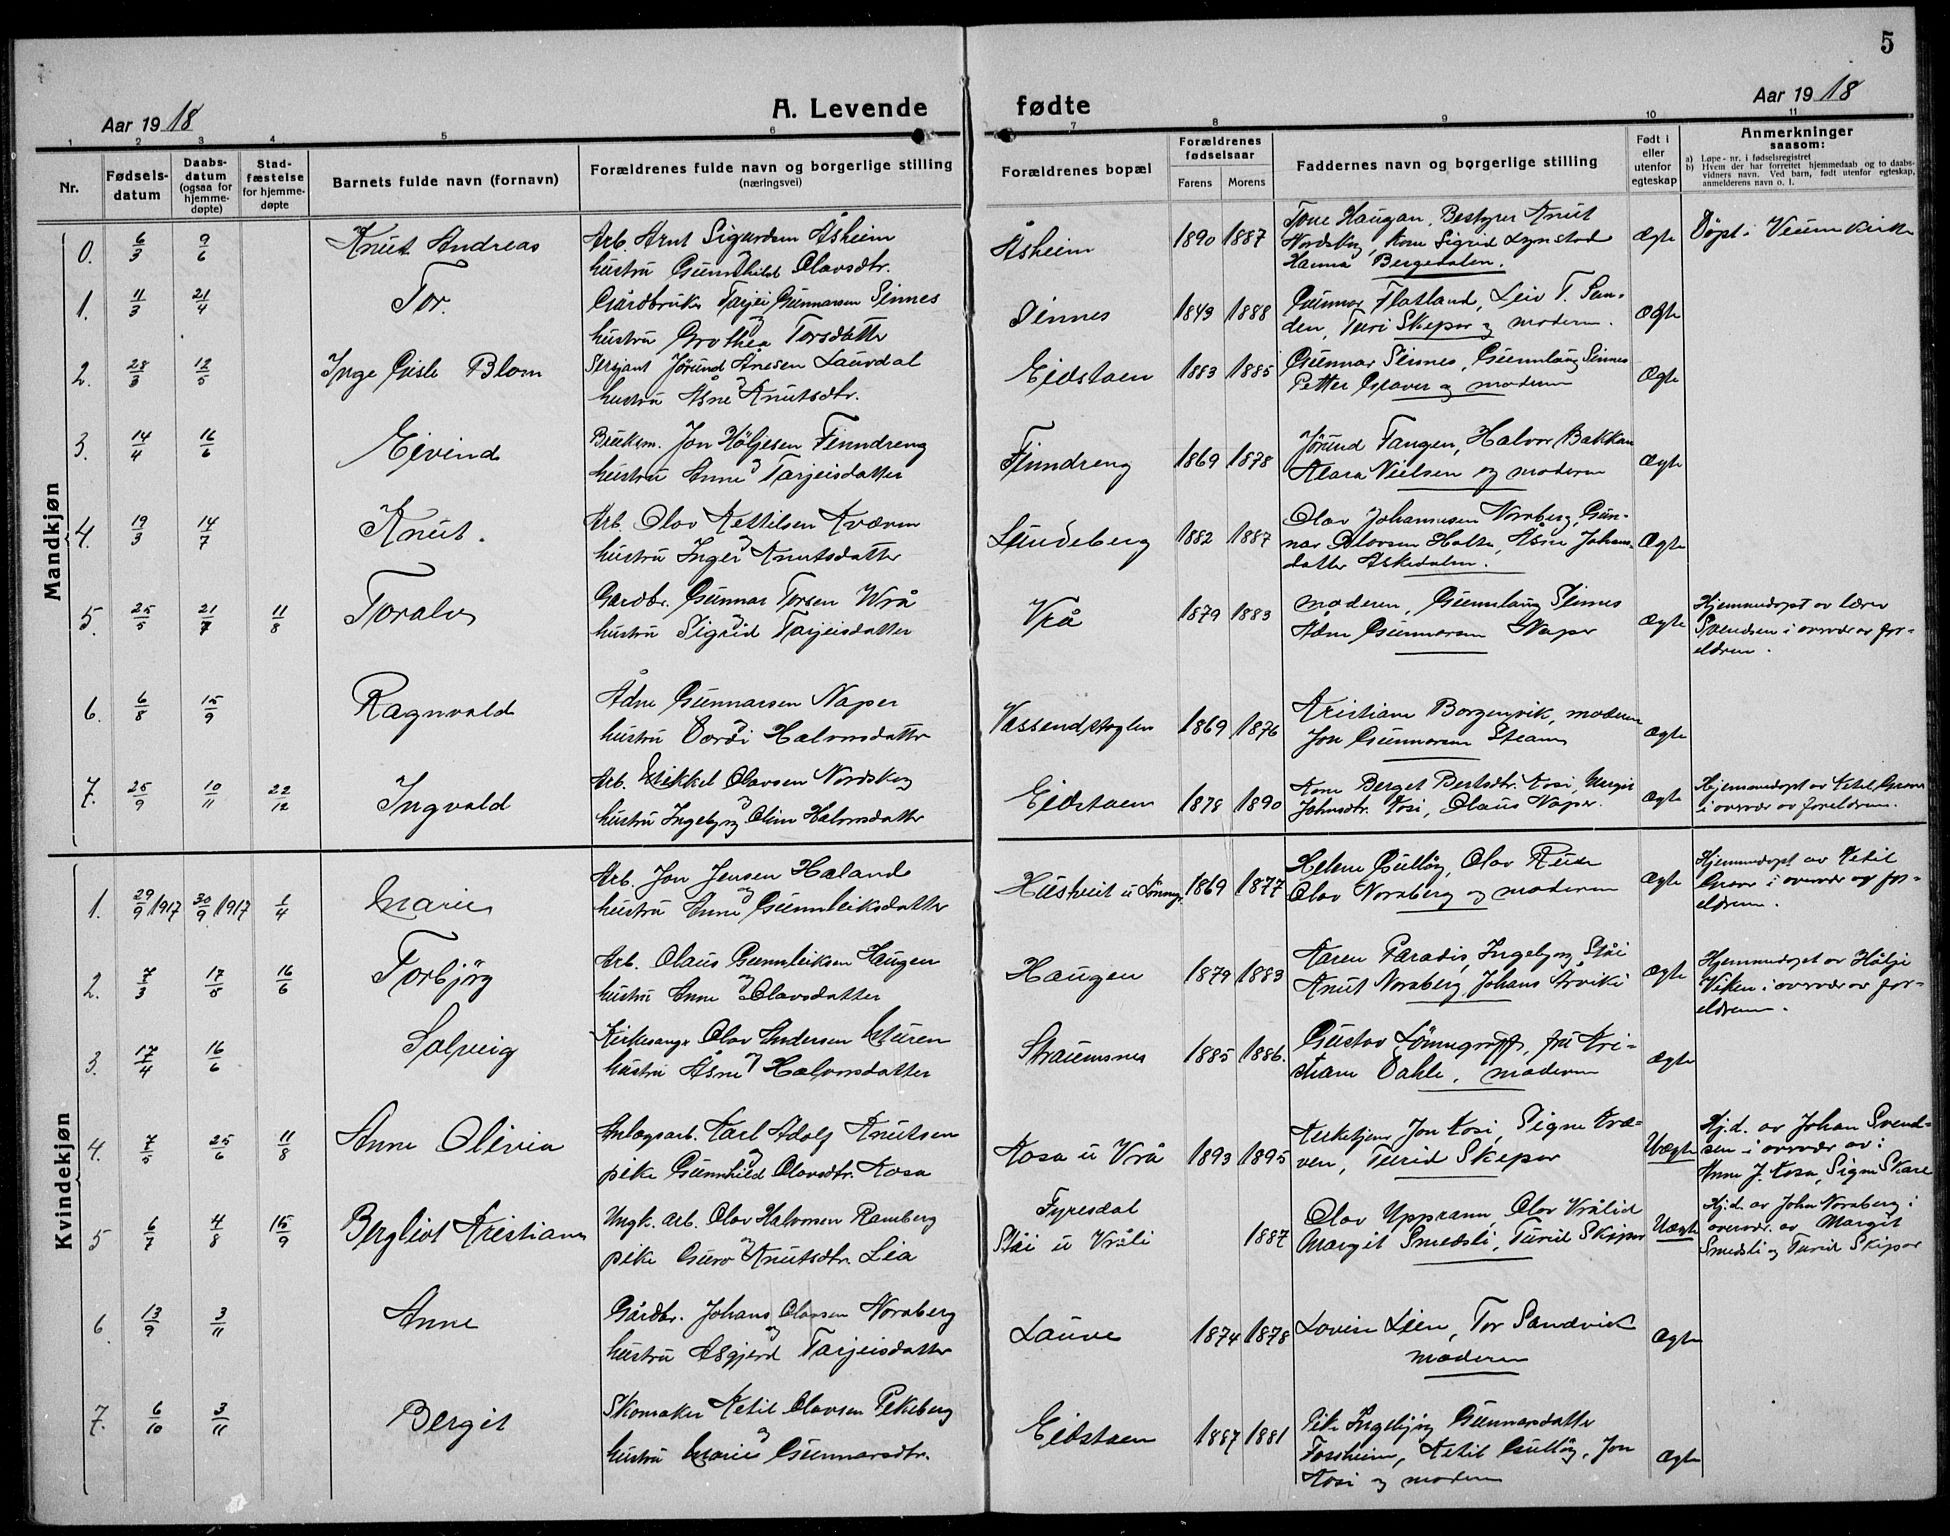 5
Aar 1918
A. Levende fødte
Aar 1918
1 2 3 4 5 6 7 8 9 10 11
Nr.
Fødsels-datum
Daabs-datum (ogsaa for hjemme-døpte)
Stad-fæstelse for hjemme-døpte
Barnets fulde navn (fornavn)
Forældrenes fulde navn og borgerlige stilling (næringsvei)
Forældrenes bopæl
Forældrenes fødselsaar
Farens Morens
Faddernes navn og borgerlige stilling
Født i eller utenfor egteskap
Anmerkninger saasom:
a) Løpe-nr. i fødselsregistret
b) Hvem der har forrettet hjemmedaab og to daabs-vidners navn. Ved barn, født utenfor egteskap, anmelderens navn o. l.
Mandkjøn
0. 6/3 9/6 Knut Andreas
Arb. Arnt Sigurdsen Åsheim
og
hustru Gunnhild Olavsdtr.
Åsheim 1890 1887
Tone Haugan, Bestyrer Knut
Nordskog, kone Sigrid Lynstad
Hanna Bergedalen.
Ægte
Døpt i Veum kirke
1. 11/3 21/4 Tor.
Gårdbruker Tarjei Gunnarsen Sinnes
og
hustru Grothea Torsdatter
Sinnes 1843 1888
Gunnar Flatland, Leiv T. San-
den, Turi Skepar og moderen.
Ægte
2. 28/3 12/5 Inge Gisle Blom
Sersjant Jørund Ånesen Lauvdal
og
hustru Åsne Knutsdtr.
Eidstaen 1883 1885
Gunnar Sinnes, Gunnlaug Sinnes
Petter Graver og moderen
Ægte
3. 14/4 16/6 Eivind
Bruksm. Jon Høljesen Finndreng
og
hustru Anne Tarjeisdatter
Finndreng 1869 1878
Jørund Tangen, Halvor Bakkan
Klara Nielsen og moderen
Ægte
4. 19/3 14/7 Knut.
Arb. Olav Kettilsen Kvæven
og
hustru Inger Knutsdatter
Lundeberg 1882 1887
Olav Johannesen Noraberg, Gun-
nar Olavsen Holte, Åsne Johans-
datter Askedalen.
Ægte
5. 25/5 21/7 11/8 Toralv
Gardbr. Gunnar Torsen Vrå
og
hustru Sigrid Tarjeisdatter
Vrå 1879 1883
moderen, Gunnlaug Sinnes
Ådne Gunnarsen Naper
Ægte
Hjemmedøpt av lærer
Svendsen i overvær av for-
eldrene.
6. 6/8 15/9 Ragnvald
Ådne Gunnarsen Naper
og
hustru Dordi Halvorsdatter
Vassendstoglen 1869 1876
Kristiane Borgenvik, moderen
Jon Gunnarsen Steane
Ægte
7. 25/9 10/11 22/12 Ingvald
Arb. Mikkel Olavsen Nordskog
og
hustru Ingebjørg Oline Halvorsdatter
Eidstaen 1878 1890
Kone Berget Bertsdtr. Kosi, Margit
Johnsdtr. Kosi, Olaus Naper.
Ægte
Hjemmedøpt av Ketil Grave
i overvær av foreldrene.
Kvindekjøn
1. 29/9 1917 30/9 1917 1/4 Marie
Arb. Jon Jensen Haland
og
hustru Anne Gunnleiksdatter
Husheit u Lønneg. 1869 1877
Helene Gulløy, Olav Rue
Olav Noraberg og moderen
Ægte
Hjemmedøpt av Ketil
Grave i overvær av for-
eldrene.
2. 7/3 17/5 16/6 Torbjørg
Arb. Olaus Gunnleiksen Haugen
og
hustru Anne Olavsdatter
Haugen 1879 1883
Karen Paradis, Ingebjørg Ståi
Knut Noraberg, Johans Arviki
Ægte
Hjemmedøpt av Hålje
Viken i overvær av for-
eldrene.
3. 17/4 16/6 Solveig
Kirkesanger Olav Andersen Muren
og
hustru Åsne Halvorsdatter
Straumsnes 1885 1886.
Gustav Lønnegropp, fru Kri-
stiane Dahle, moderen
Ægte
4. 7/5 25/6 11/8 Anne Olivia
Anlægsarb. Karl Adolf Knutsen
og
pike Gunnhild Olavsdtr. Kosa
Kosa u Vrå 1893 1895
Kirketjener Jon Kosi, Signe Kvæ-
ven, Turid Skepar
Uægte
Hj.d. av Johan Svend-
sen i overvær av:
Anne J. Kosa, Signe Skare
5 6/7 4/8 15/9 Bergliot Kristiane
Ungk. arb. Olav Halvorsen Ramberg
og
pike Guro Knutsdtr. Lia
Fyresdal
Ståi u Vråli 1887
Olav Upprann, Olav Vrålid
Margit Smedsli, Turid Skipar
Uægte
Hj.d. av John Noraberg i
overvær. av Margit
Smedsli og Turid Skipar
6. 13/9 3/11 Anne
Gårdbr. Johans Olavsen Noraberg
og
hustru Asgjerd Tarjeisdatter
Lauve 1874 1878
Lovise Lien, Tor Sandvik
moderen
Ægte
7. 6/10 3/11 Bergit
Skomaker Ketil Olavsen Pekeberg
og
hustru Marie Gunnarsdtr.
Eidstaen 1887 1881
Pike Ingebjørg Gunnarsdatter
Fossheim, Ketil Gulløy, Jon
Kosi og moderen
Ægte